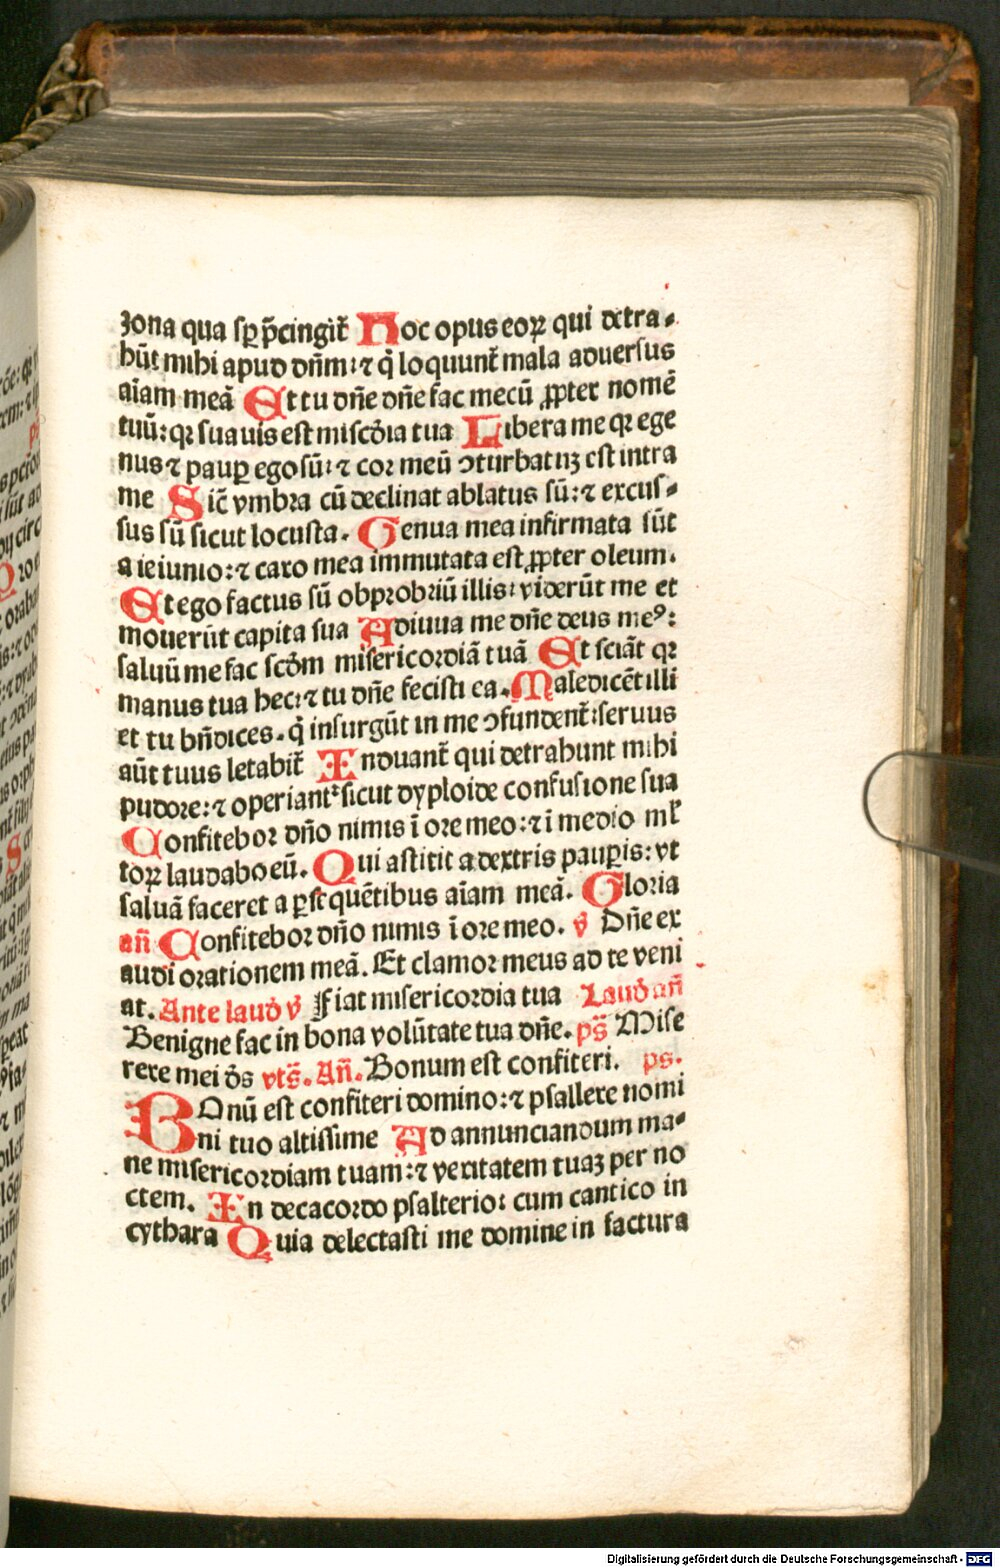 zona qua sꝑ p̃cingit̃ Hoc opus eoꝝ qui detra⸗
hũt mihi apud dñm: ⁊ q̃ loquunt̃ mala aduersus
aĩam meã Et tu dñe dñe fac mecũ ꝓpter nomẽ
tuũ: qꝛ suauis est misc̃dia tua Libera me qꝛ ege
nus ⁊ paup̱ ego sũ: ⁊ cor meũ ↄturbatuʒ est intra
me Sic̃ vmbra cũ declinat ablatus sũ: ⁊ excus⸗
sus sũ sicut locusta. Genua mea infirmata sũt
a ieiunio: ⁊ caro mea immutata est ꝓpter oleum.
Et ego factus sũ obprobriũ illis: viderũt me et
mouerũt capita sua Adiuua me dñe deus meꝰ:
saluũ me fac scd̃m misericordiã tuã Et sciãt qꝛ
manus tua hec: ⁊ tu dñe fecisti ea. Maledicẽt illi
et tu bñdices. q̃ insurgũt in me ↄfundent̃: seruus
aũt tuus letabit̃ Induant̃ qui detrahunt mihi
pudore: ⁊ operiant̃ sicut dyploide confusione sua
Confitebor dño nimis ĩ ore meo: ⁊ ĩ medio ml̃
toꝝ laudabo eũ. Qui astitit a dextris paup̱is: vt
saluã faceret a ꝑseq̃uẽtibus aĩam meã. Gloria
añ Confitebor dño nimis ĩ ore meo. v̾ Dñe ex
audi orationem meã. Et clamor meus ad te veni
at. Ante laud̾ v̾ Fiat misericordia tua Laud̾ añ
Benigne fac in bona volũtate tua dñe. ps̃ Mise
rere mei d̾s vts̃. Añ. Bonum est confiteri. ps.
BOnũ est confiteri domino: ⁊ psallere nomi
ni tuo altissime Ad annunciandum ma⸗
ne misericordiam tuam: ⁊ veritatem tuaʒ per no
ctem. In decacordo psalterio: cum cantico in
cythara Quia delectasti me domine in factura
Digitalisierung gefördert durch die Deutsche Forschungsgemeinschaft - DFG